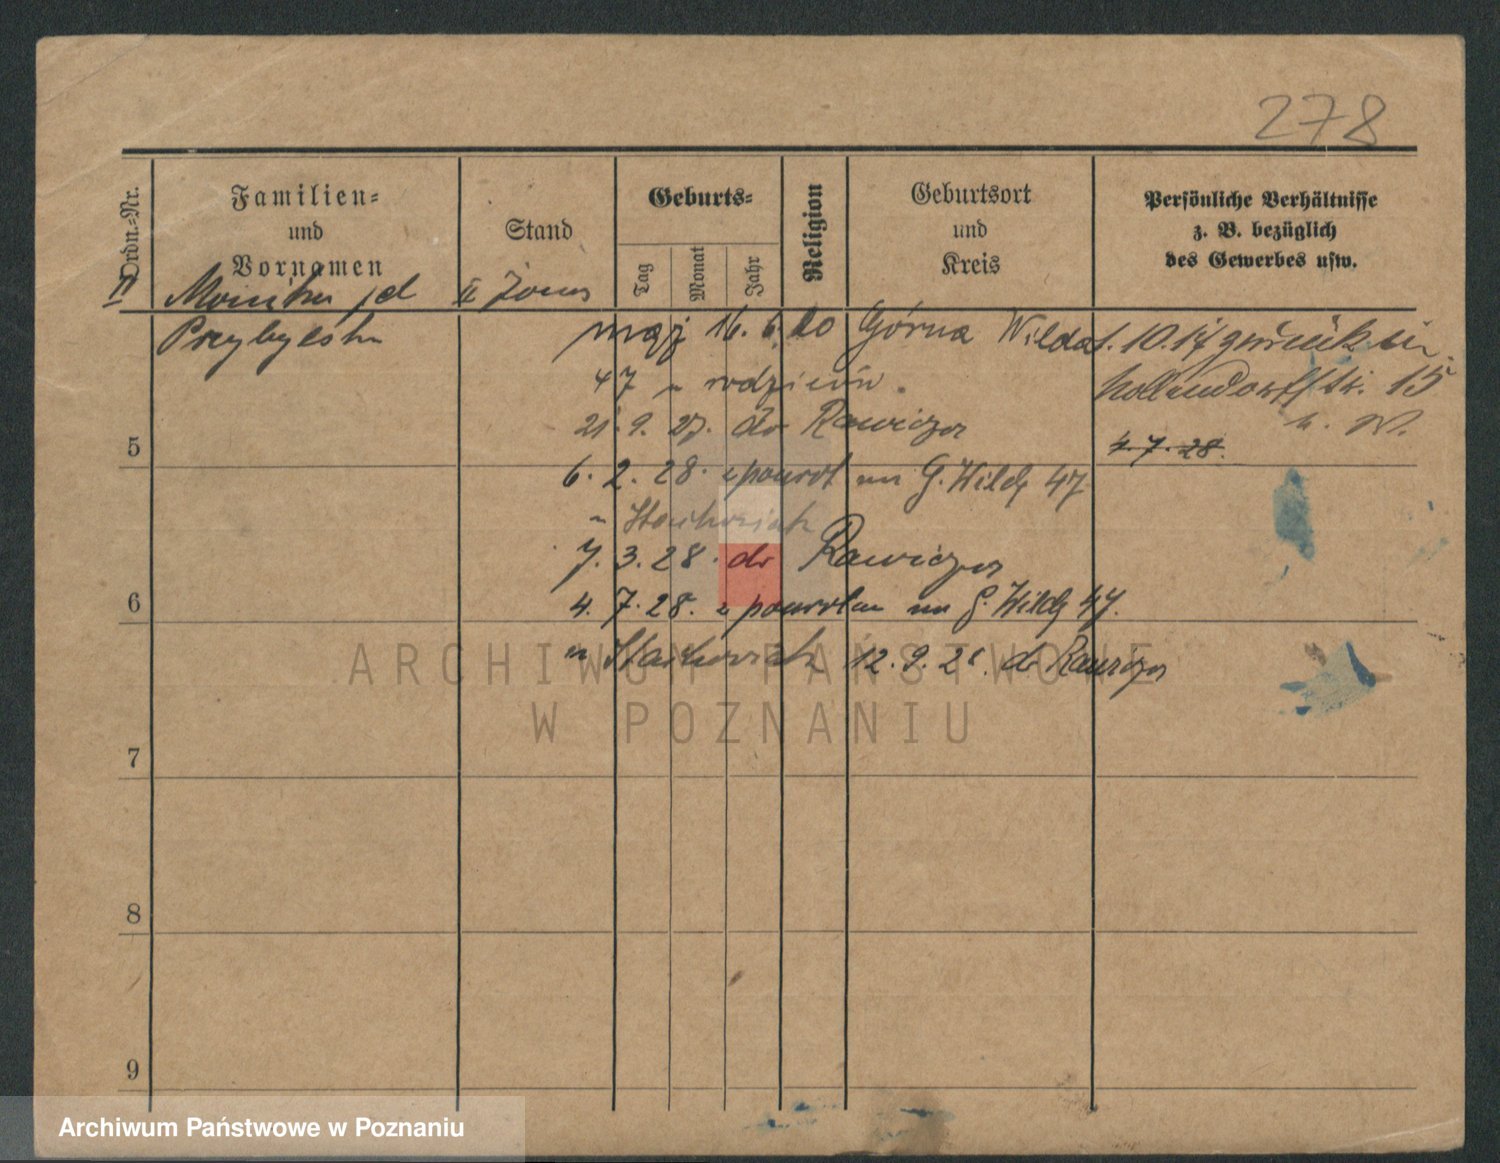 278
Ordn.-Nr.
Familien-
und
Vornamen
Stand
Geburts-
Tag
Monat
Jahr
Religion
Geburtsort
und
Kreis
Persönliche Verhältnisse
z. B. bezüglich
des Gewerbes usw.
II
II
16. 6. 20 Górna Wilda
1. 10. 17 zurück
47 u rodziców.
15
21. 9. 27. do Rawicza
5
4.7.28.
6. 2. 28. z powrot na G. Wildę 47
u
7. 3. 28. do Rawicza
6
4. 7. 28. z powrotem na G. Wildę 47.
u 12. 9. 28. do Rawicza
ARCHIWUM PAŃSTWOWE
W POZNANIU
7
8
9
Archiwum Państwowe w Poznaniu